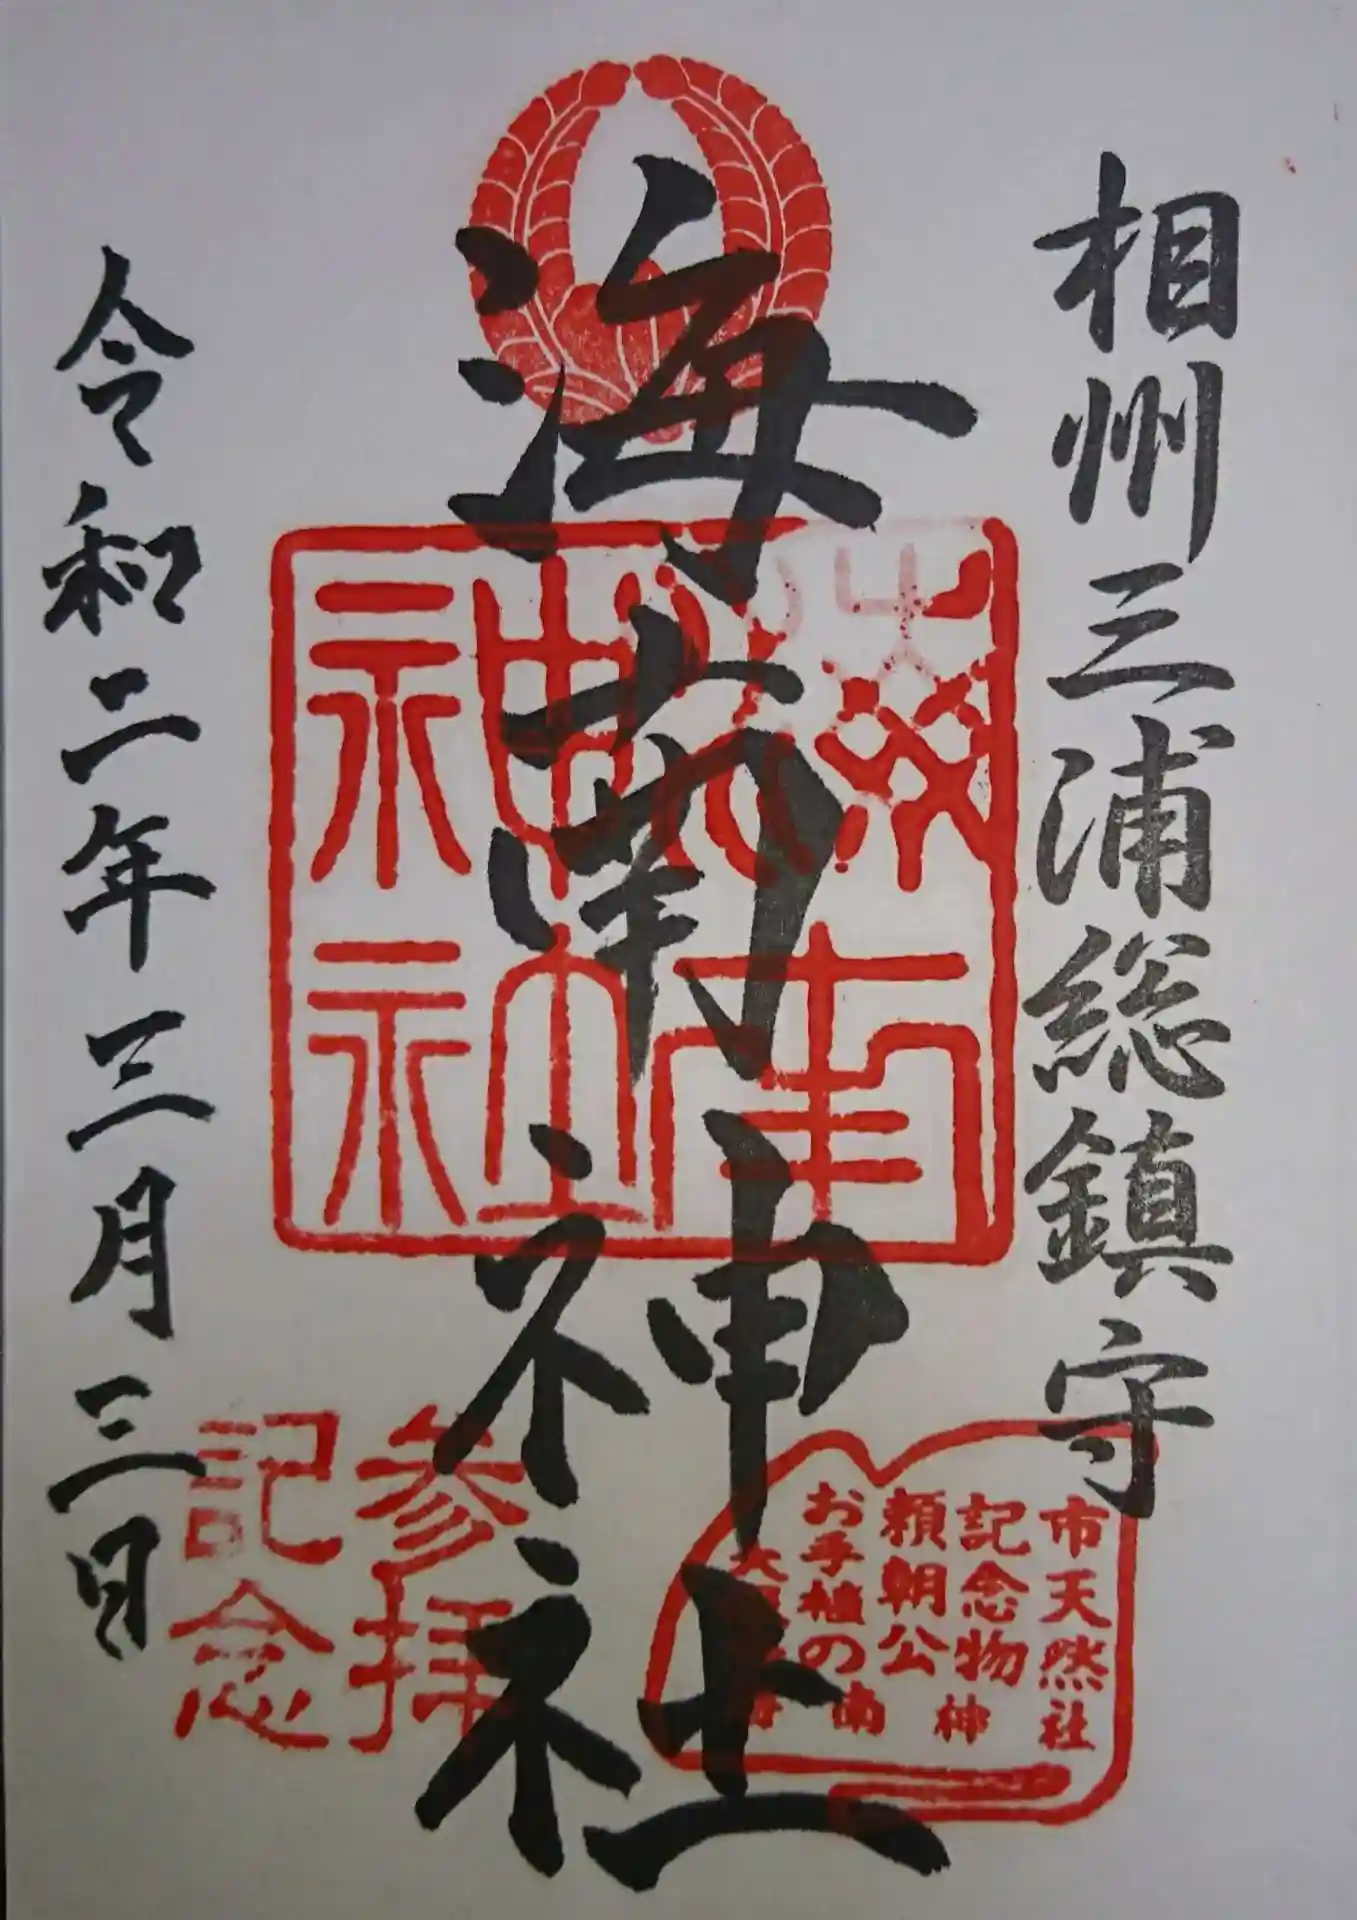 相州三浦総鎮守
海南神社
海南神社
令和二年三月三日
参拝
記念
市天然
記念物
頼朝公
お手植の
大
海南神社